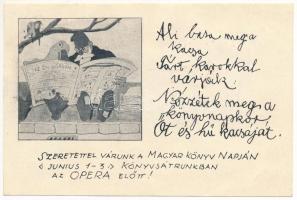 Ali basa meg a
kacsa
Tárt karokkal
várják
Nézzétek meg a
könyvnapkor,
Őt és hű kacsáját.
SZERETETTEL VÁRUNK A MAGYAR KÖNYV NAPJÁN
JUNIUS 1-3. KÖNYVSÁTRUNKBAN
AZ OPERA ELŐTT!